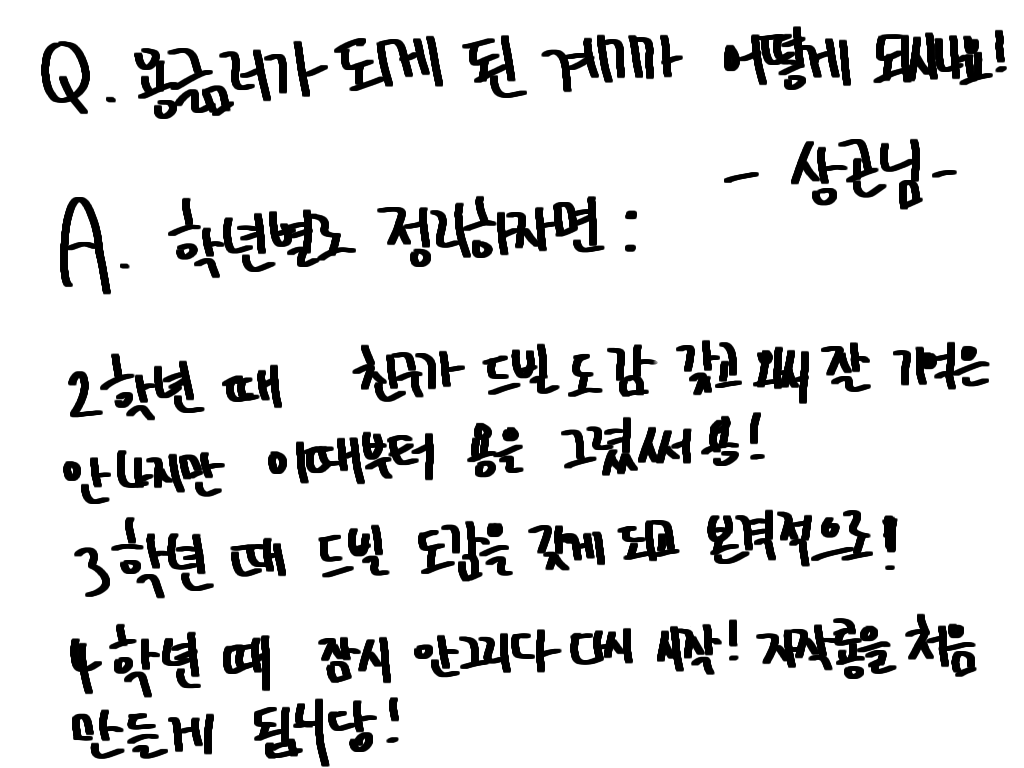 Q. 용글러가 되게 된 계기가 어떻게 되시나요!
- 상관님 -
A. 학년별로 정리하자면 :
2학년 때 친구가 드빌 도감 갖고 와써 잘 기억은
안나지만 이때부터 용을 그렸써욤!
3학년 때 드빌 도감을 갖게 되고 본격적으로!
4학년 때 잠시 안그리다 다시 시작! 자작룡을 처음
만들게 됩니당!